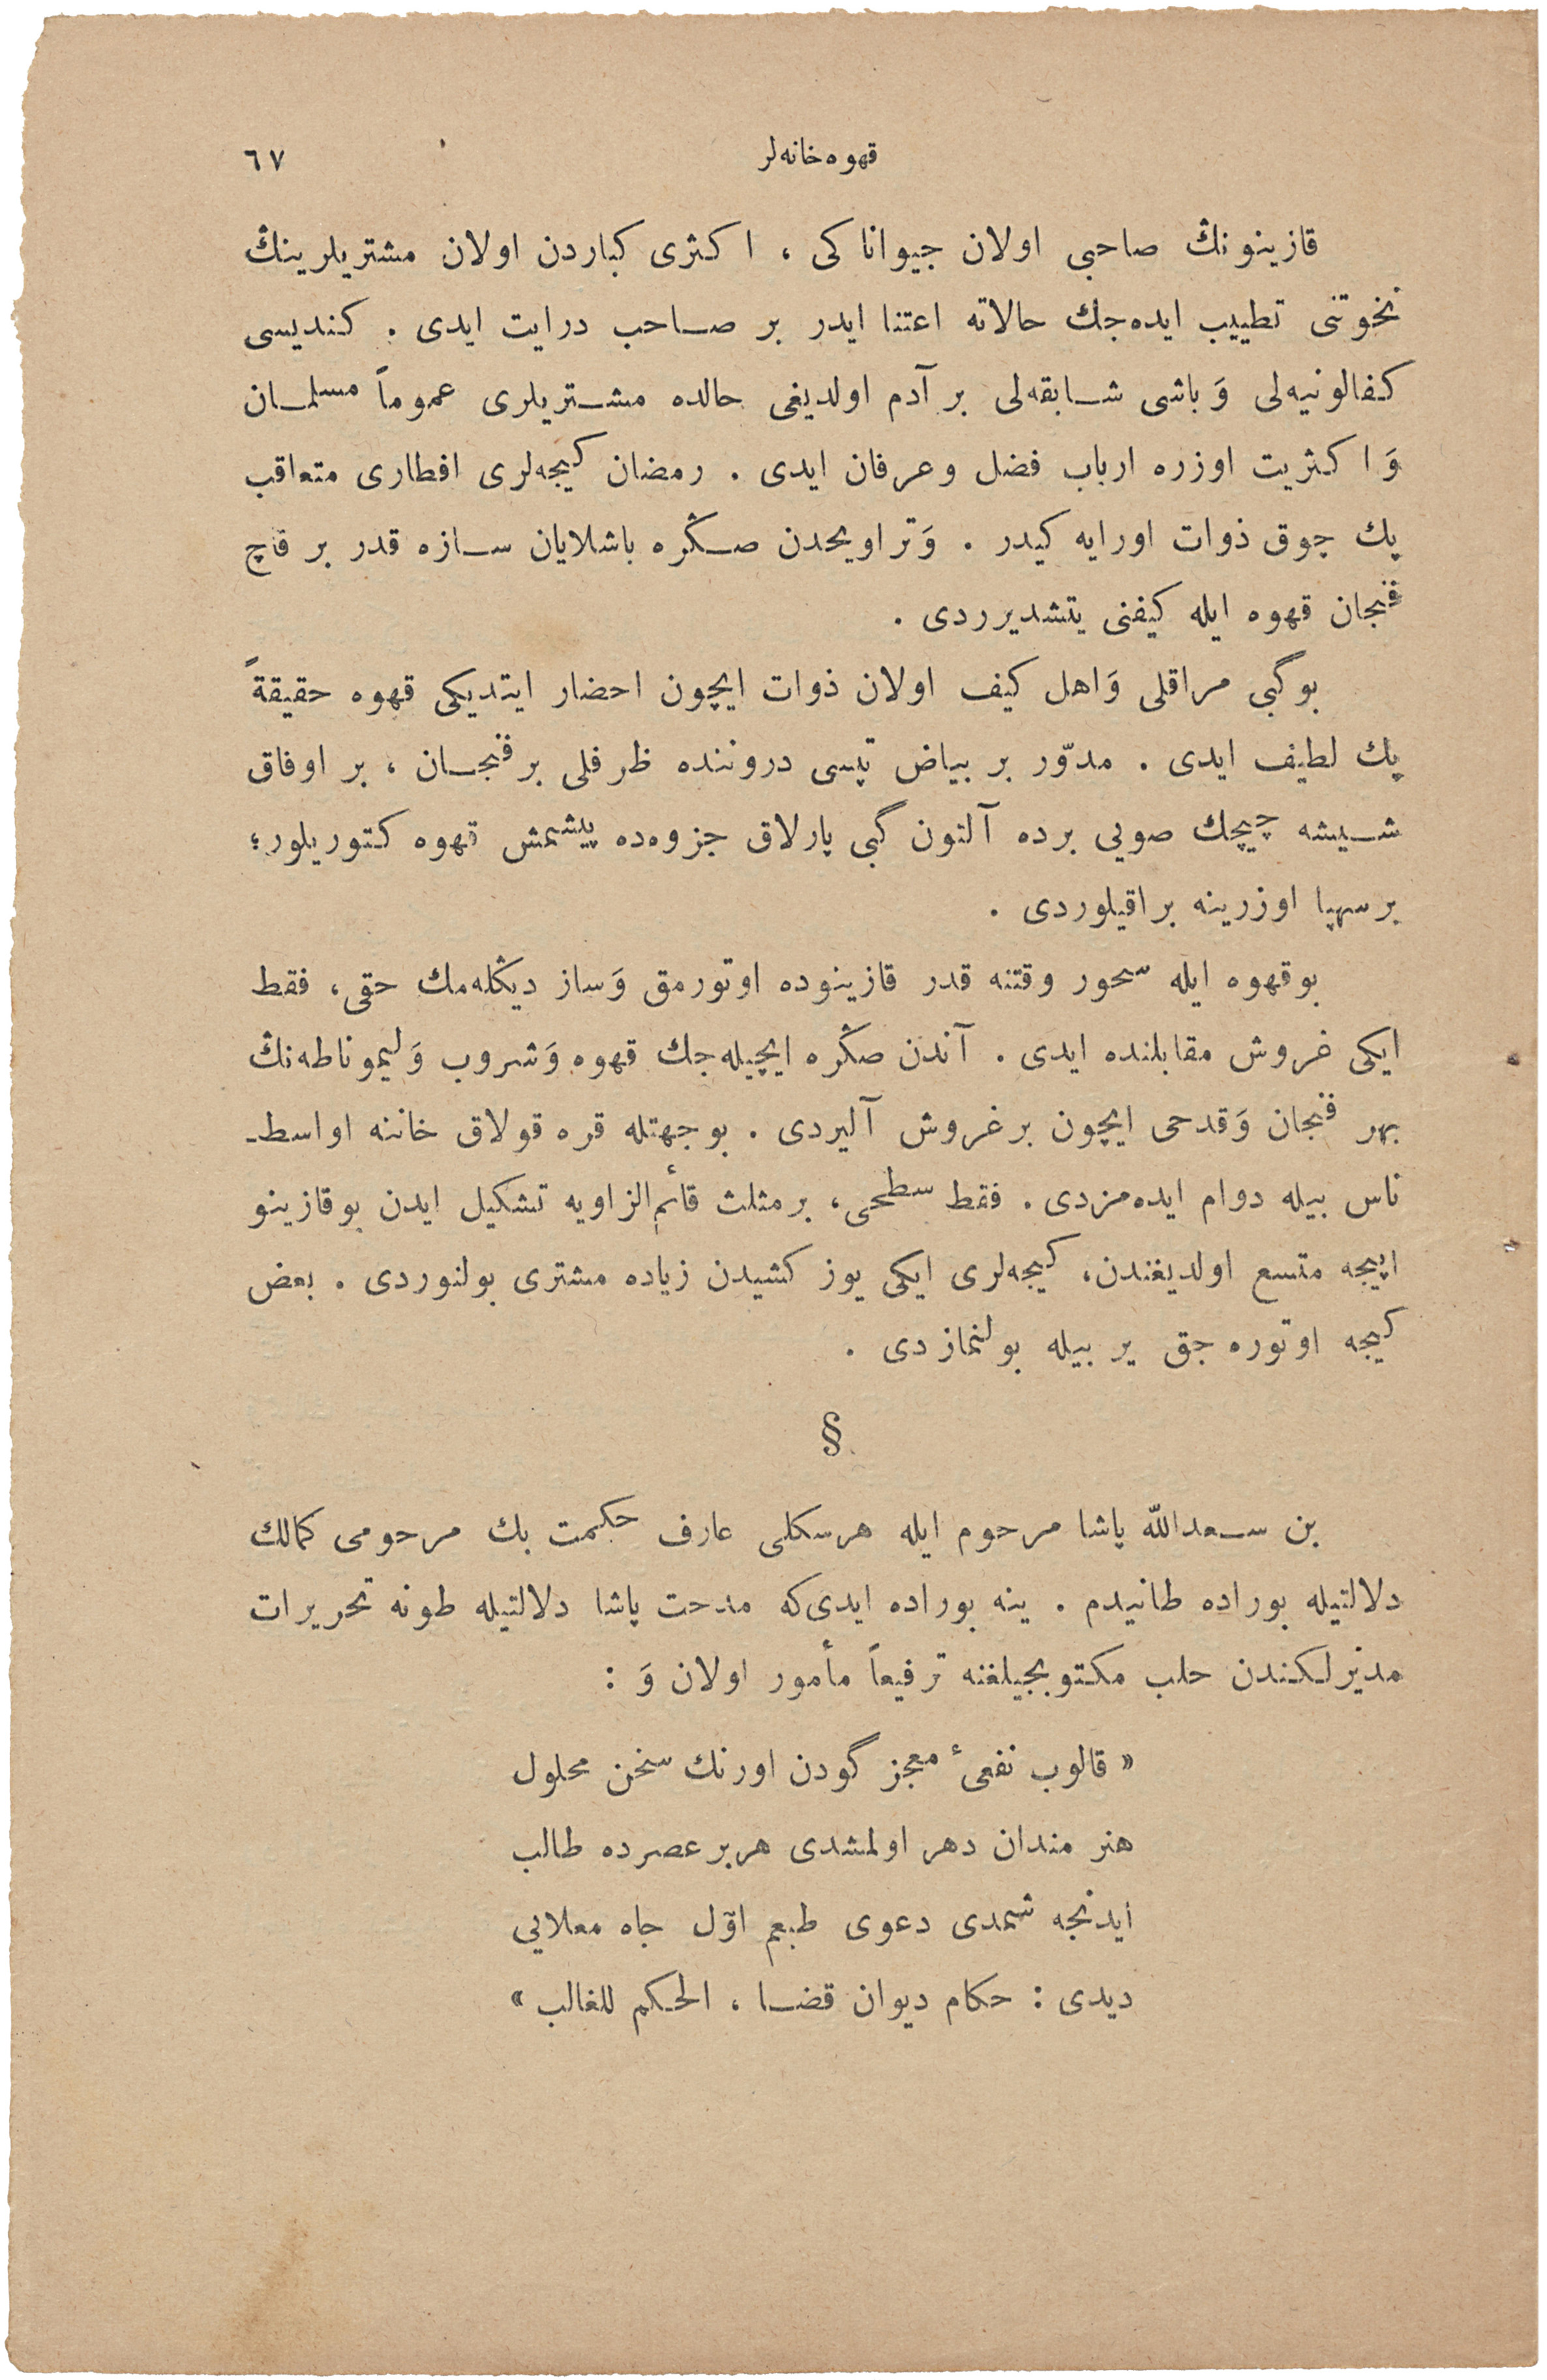 قهوه‌خانه‌لر ٦٧
قازینونڭ صاحبی اولان جیواناکی ، اکثری کباردن اولان مشتریلرینڭ
نخوتنی تطییب ایده‌جك حالاته اعتنا ایدر بر صاحب درایت ایدی . کندیسی
کفالونیه‌لی وَ باشی شابقه‌لی بر آدم اولدیغی حالده مشتریلری عموماً مسلمان
وَ اکثریت اوزره ارباب فضل وعرفان ایدی . رمضان کیجه‌لری افطاری متعاقب
پك چوق ذوات اورایه کیدر . وَ تراویحدن صڭره باشلایان سازه قدر بر قاچ
فنجان قهوه ایله کیفنی یتشدیرردی .
بوگبی مراقلی وَاهل کیف اولان ذوات ایچون احضار ایتدیکی قهوه حقیقةً
پك لطیف ایدی . مدوّر بر بیاض تپسی دروننده ظرفلی بر فنجان ، بر اوفاق
شیشه چیچك صویی برده آلتون گبی پارلاق جزوه‌ده پیشمش قهوه کتوریلور؛
بر سهپا اوزرینه براقیلوردی .
بوقهوه ایله سحور وقتنه قدر قازینوده اوتورمق وَساز دیڭله‌مك حقی، فقط
ایکی غروش مقابلنده ایدی . آندن صڭره ایچیله‌جك قهوه وَشروب وَلیموناطه‌نڭ
بهر فنجان وَقدحی ایچون برغروش آلیردی . بوجهتله قره قولاق خاننه اواسط-
ناس بیله دوام ایده‌مزدی . فقط سطحی، برمثلث قائم‌الزاویه تشکیل ایدن بوقازینو
اپیجه متسع اولدیغندن، کیجه‌لری ایکی یوز کشیدن زیاده مشتری بولنوردی . بعض
کیجه اوتوره‌جق یر بیله بولنمازدی .
§
بن سعدالله پاشا مرحوم ایله هرسکلی عارف حکمت بك مرحومی کمالك
دلالتیله بوراده طانیدم . ینه بوراده ایدی‌که مدحت پاشا دلالتیله طونه تحریرات
مدیرلکندن حلب مکتوبجیلغنه ترفیعاً مأمور اولان وَ :
« قالوب نفعیٔ معجز گودن اورنك سخن محلول
هنرمندان دهر اولمشدی هربر عصرده طالب
ایدنجه شمدی دعوی طبعم اوّل جاه معلایی
دیدی : حکام دیوان قضا ، الحکم للغالب »